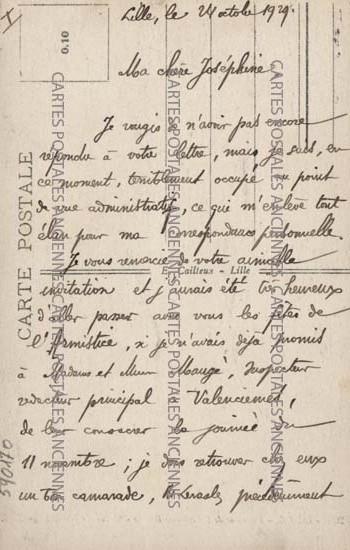 I
Lille, le 24 octobre 1929.
0.10
Ma chère Joséphine
Je rougis de n'avoir pas encore
répondu à votre lettre, mais je suis, en
ce moment, terriblement occupé au point
de vue administratif, ce qui m'enlève tout
élan pour ma correspondance personnelle.
Je vous remercie de votre aimable
E. Cailteux - Lille
invitation et j'aurais été très heureux
d'aller passer avec vous les fêtes de
l'Armistice, si je n'avais déjà promis
à Madame et Maugé, Inspecteur
rédacteur principal à Valenciennes,
de leur consacrer la journée du
11 novembre ; je dois retrouver chez eux
un bon camarade, précédemment
CARTE POSTALE
CARTES POSTALES ANCIENNES
CARTES POSTALES ANCIENNES
CARTES POSTALES ANCIENNES
590170